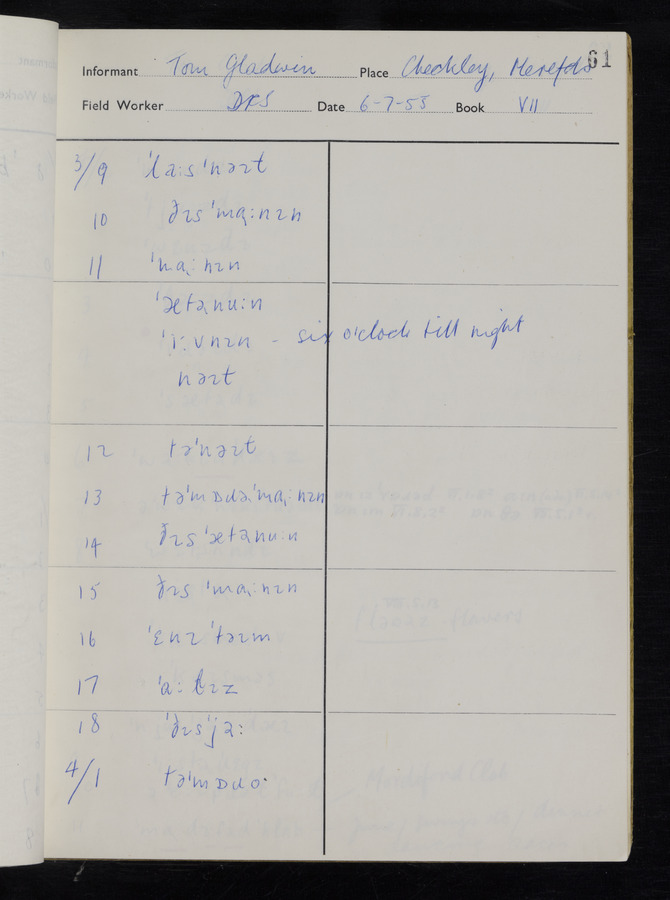 61
Informant Tom Gladwin Place Checkley, Herefds
Field Worker DRS Date 6-7-55 Book VII
3/9 ˈlaːsˈnəɪt
10 ðɪsˈmɑːnɪn
11 ˈmɑːnɪn
ˈæftənuːn
ˈiːvnɪn - six o'clock till night
nəɪt
12 təˈnəɪt
13 təˈmɒɹəˈmɑːnɪn
14 ðɪsˈæftənuːn
15 ðɪs ˈmɑːnɪn
16 ˈɛnɪˈtəɪm
17
18 ˈðɪsˈjəː
4/1